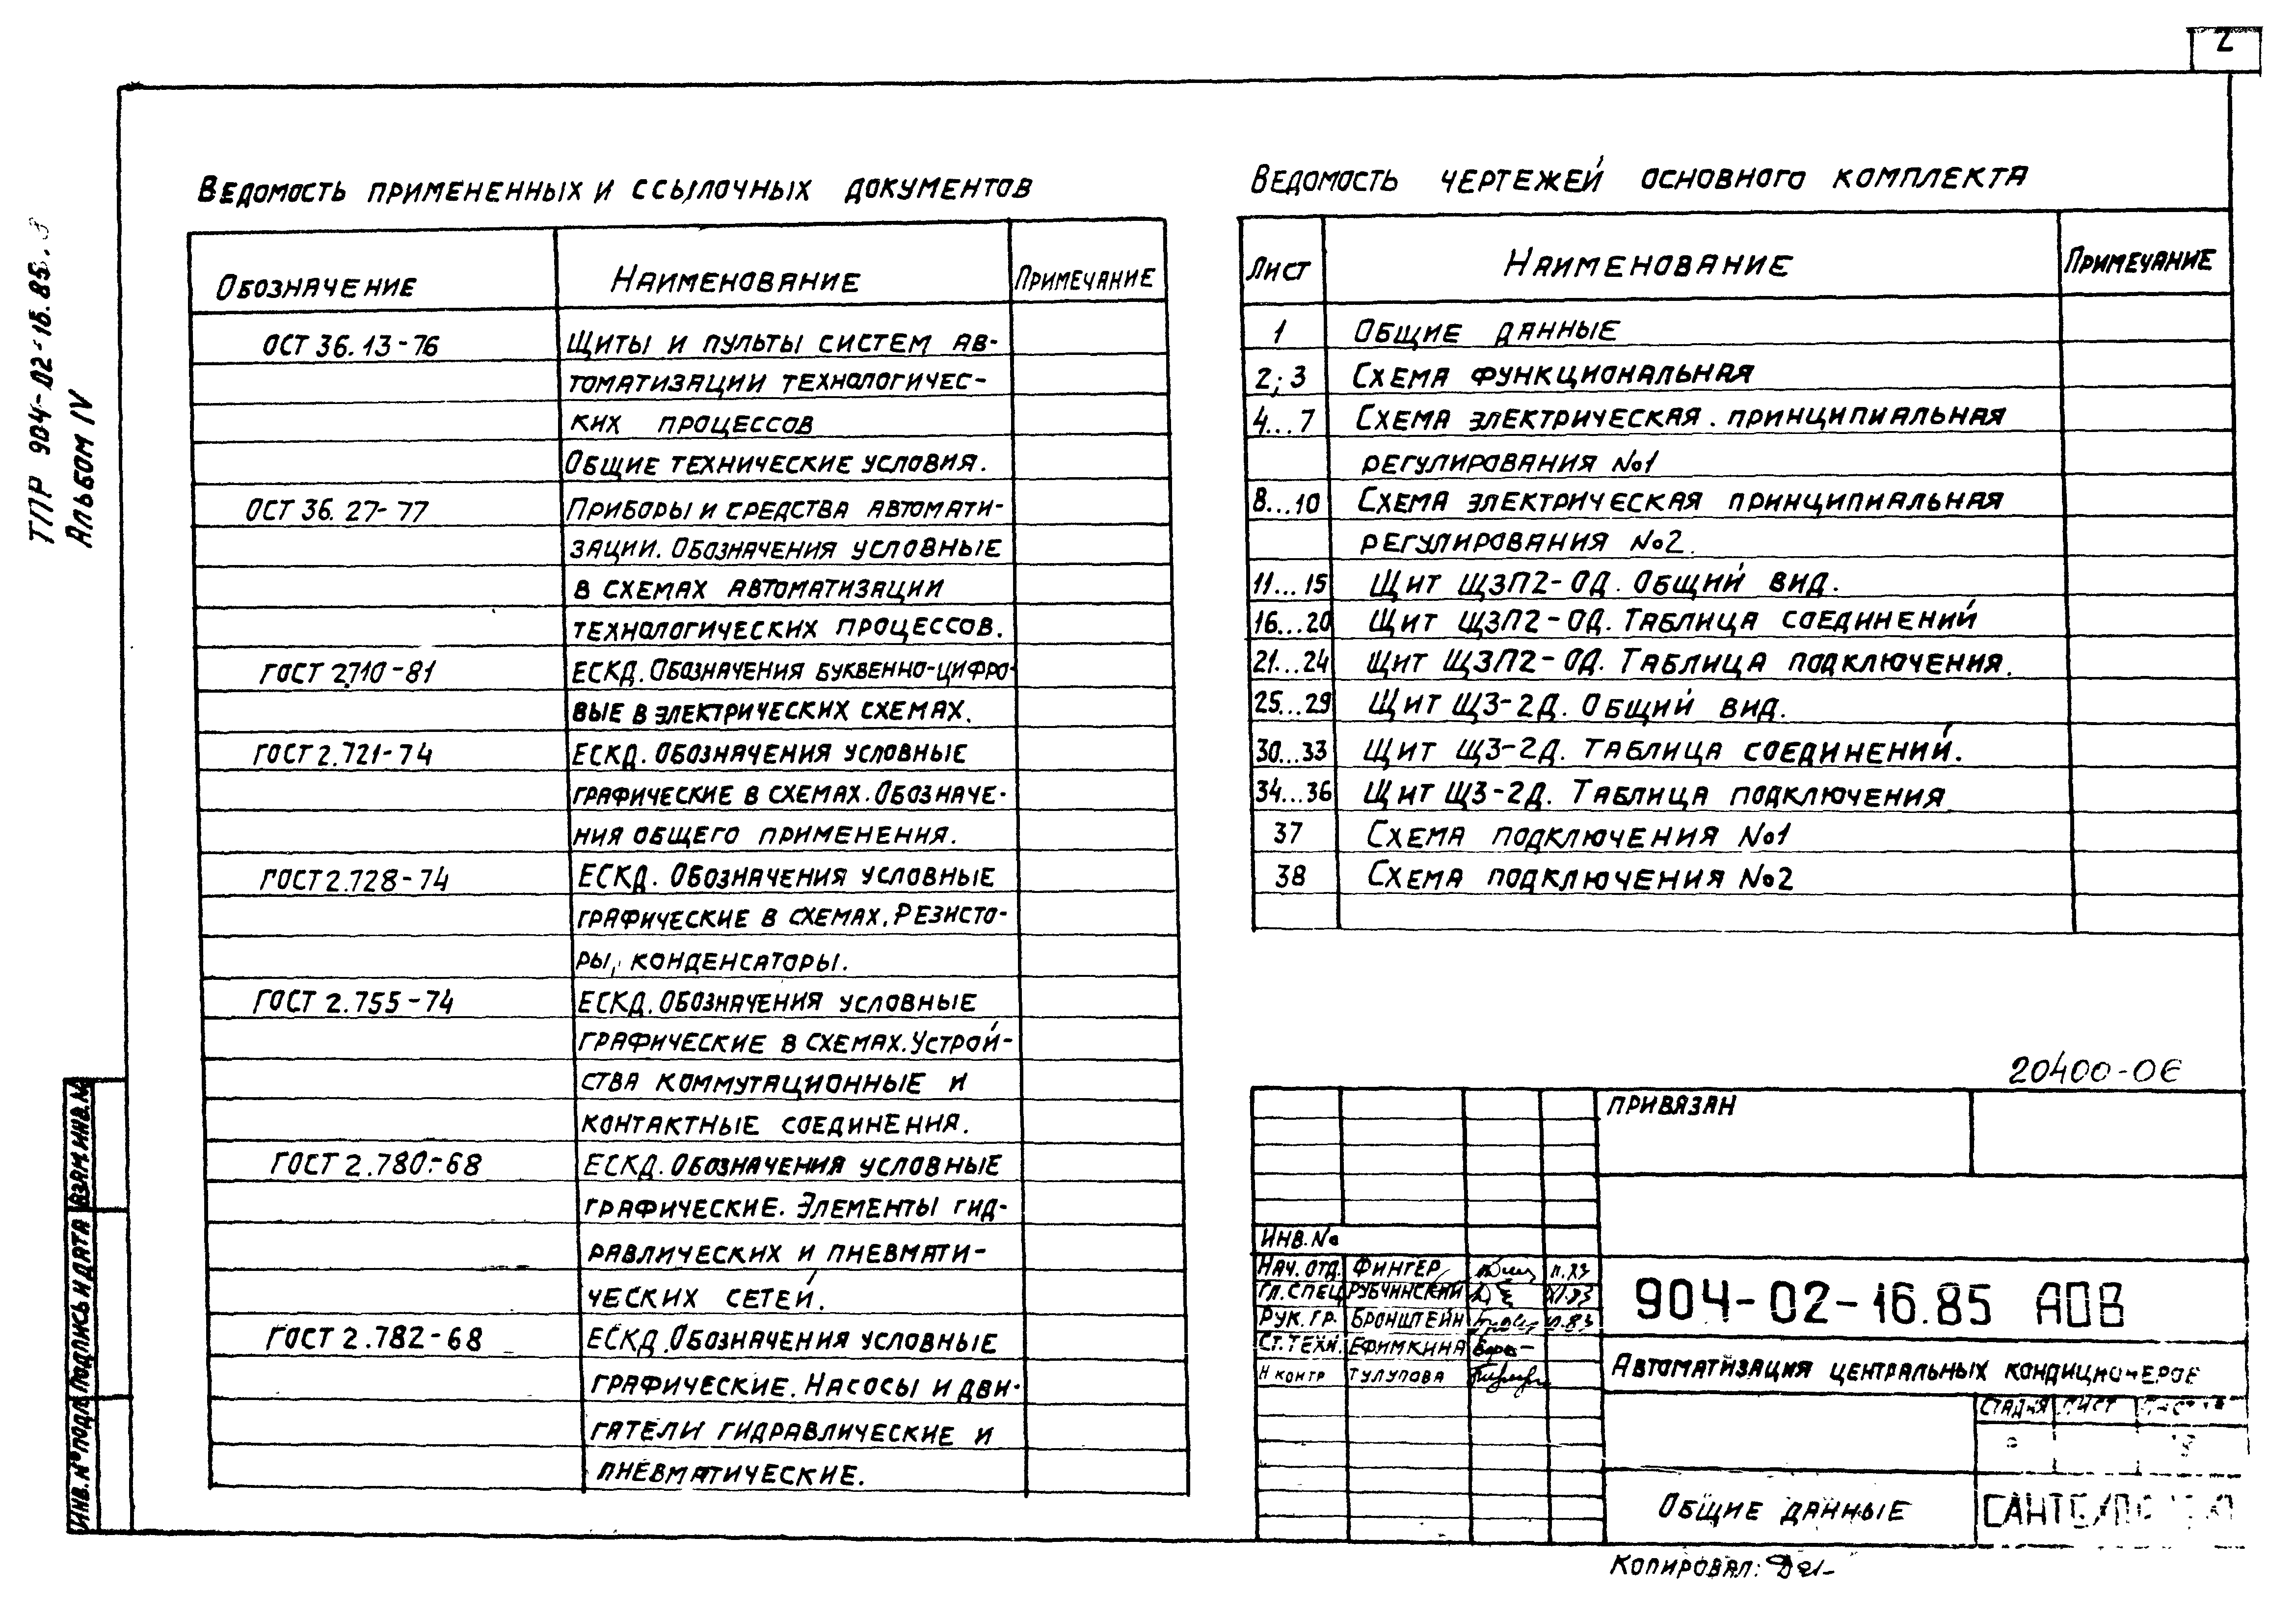 2
ТПР 904-02-16.85.
Альбом IV
Ведомость примененных и ссылочных документов
Обозначение Наименование Примечание
ОСТ 36.13-76 Щиты и пульты систем ав-
томатизации технологичес-
ких процессов
Общие технические условия.
ОСТ 36.27-77 Приборы и средства автомати-
зации. Обозначения условные
в схемах автоматизации
технологических процессов.
ГОСТ 2.710-81 ЕСКД. Обозначения буквенно-цифро-
вые в электрических схемах.
ГОСТ 2.721-74 ЕСКД. Обозначения условные
графические в схемах. Обозначе-
ния общего применения.
ГОСТ 2.728-74 ЕСКД. Обозначения условные
графические в схемах. Резисто-
ры, конденсаторы.
ГОСТ 2.755-74 ЕСКД. Обозначения условные
графические в схемах. Устрой-
ства коммутационные и
контактные соединения.
ГОСТ 2.780-68 ЕСКД. Обозначения условные
графические. Элементы гид-
равлических и пневмати-
ческих сетей.
ГОСТ 2.782-68 ЕСКД. Обозначения условные
графические. Насосы и дви-
гатели гидравлические и
пневматические.
Ведомость чертежей основного комплекта
Лист Наименование Примечание
1 Общие данные
2; 3 Схема функциональная
4...7 Схема электрическая. принципиальная
регулирования №1
8...10 Схема электрическая принципиальная
регулирования №2.
11...15 Щит ЩЗП2-ОД. Общий вид.
16...20 Щит ЩЗП2-ОД. Таблица соединений
21...24 Щит ЩЗП2-ОД. Таблица подключения.
25...29 Щит ЩЗ-2Д. Общий вид.
30...33 Щит ЩЗ-2Д. Таблица соединений.
34...36 Щит ЩЗ-2Д. Таблица подключения
37 Схема подключения №1
38 Схема подключения №2
20400-06
Привязан
Инв. №
Нач. отд. Фингер 11.83
Гл. спец. Рубчинский XI.83
Рук. гр. Бронштейн 11.83
Ст. техн. Ефимкина
Н контр Тулупова
904-02-16.85 АОВ
Автоматизация центральных кондиционеров
Стадия Лист
Общие данные
Копировал:
Взам. инв. №
Подпись и дата
Инв. № подл.